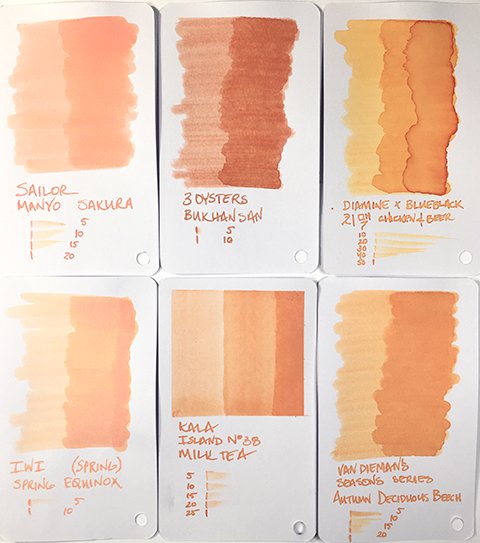 SAILOR
MANYO SAKURA
5
10
15
20
3 OYSTERS
BUKHANSAN
5
10
DIAMINE & BLUEBLACK
CHICKEN & BEER
10
20
30
40
50
IWI (SPRING)
SPRING EQUINOX
5
10
KALA
ISLAND Nº38
MILK TEA
5
10
15
20
25
VAN DIEMAN'S
SEASONS SERIES
AUTUMN DECIDUOUS BEECH
5
10
15
20